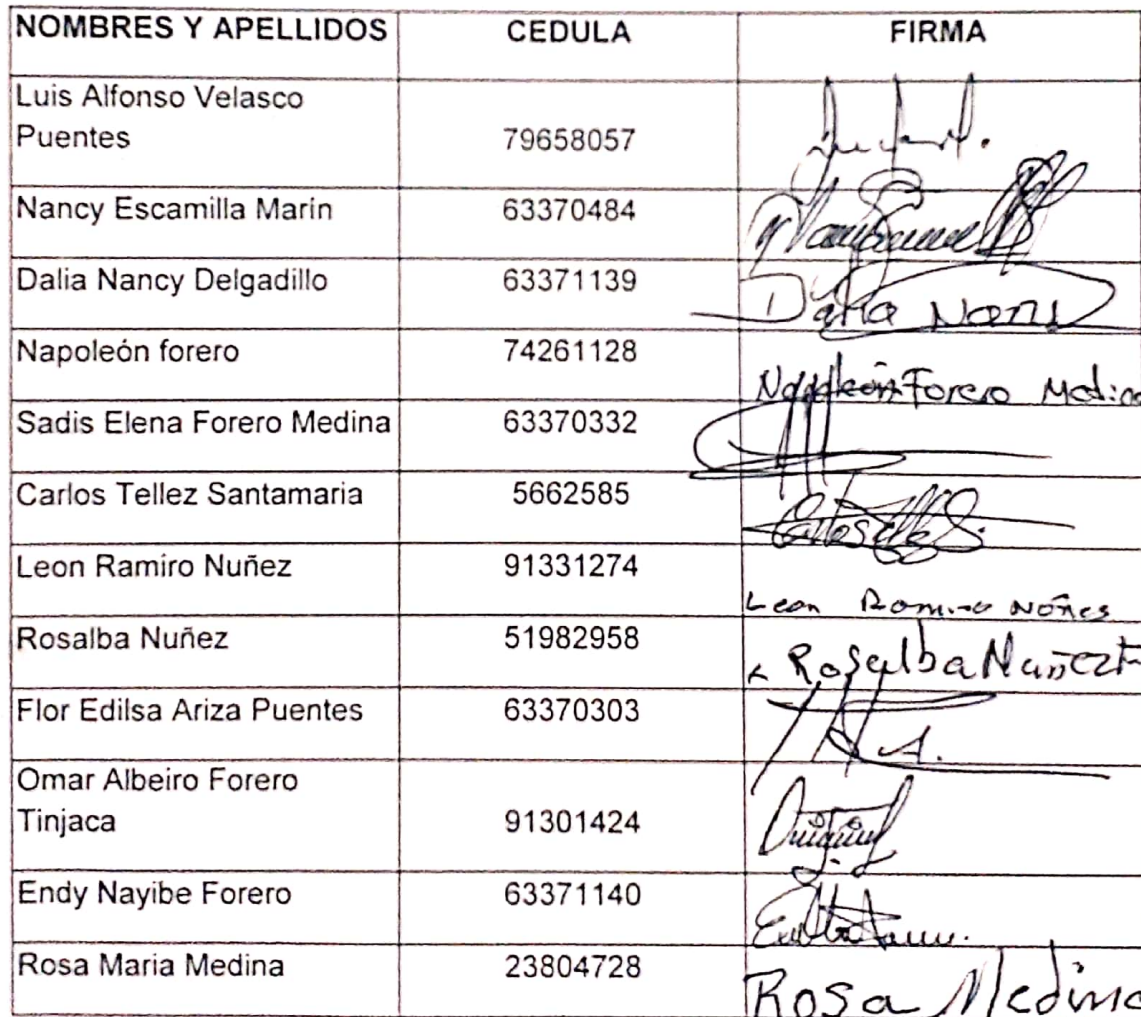 NOMBRES Y APELLIDOS CEDULA FIRMA
Luis Alfonso Velasco
Puentes 79658057
Nancy Escamilla Marín 63370484
Dalia Nancy Delgadillo 63371139
Dalia Nancy
Napoleón forero 74261128
Napoleón Forero Medina
Sadis Elena Forero Medina 63370332
Carlos Tellez Santamaria 5662585
Leon Ramiro Nuñez 91331274
Leon Ramiro Nuñes
Rosalba Nuñez 51982958
Rosalba Nuñez
Flor Edilsa Ariza Puentes 63370303
Omar Albeiro Forero
Tinjaca 91301424
Endy Nayibe Forero 63371140
Rosa Maria Medina 23804728
Rosa Medina